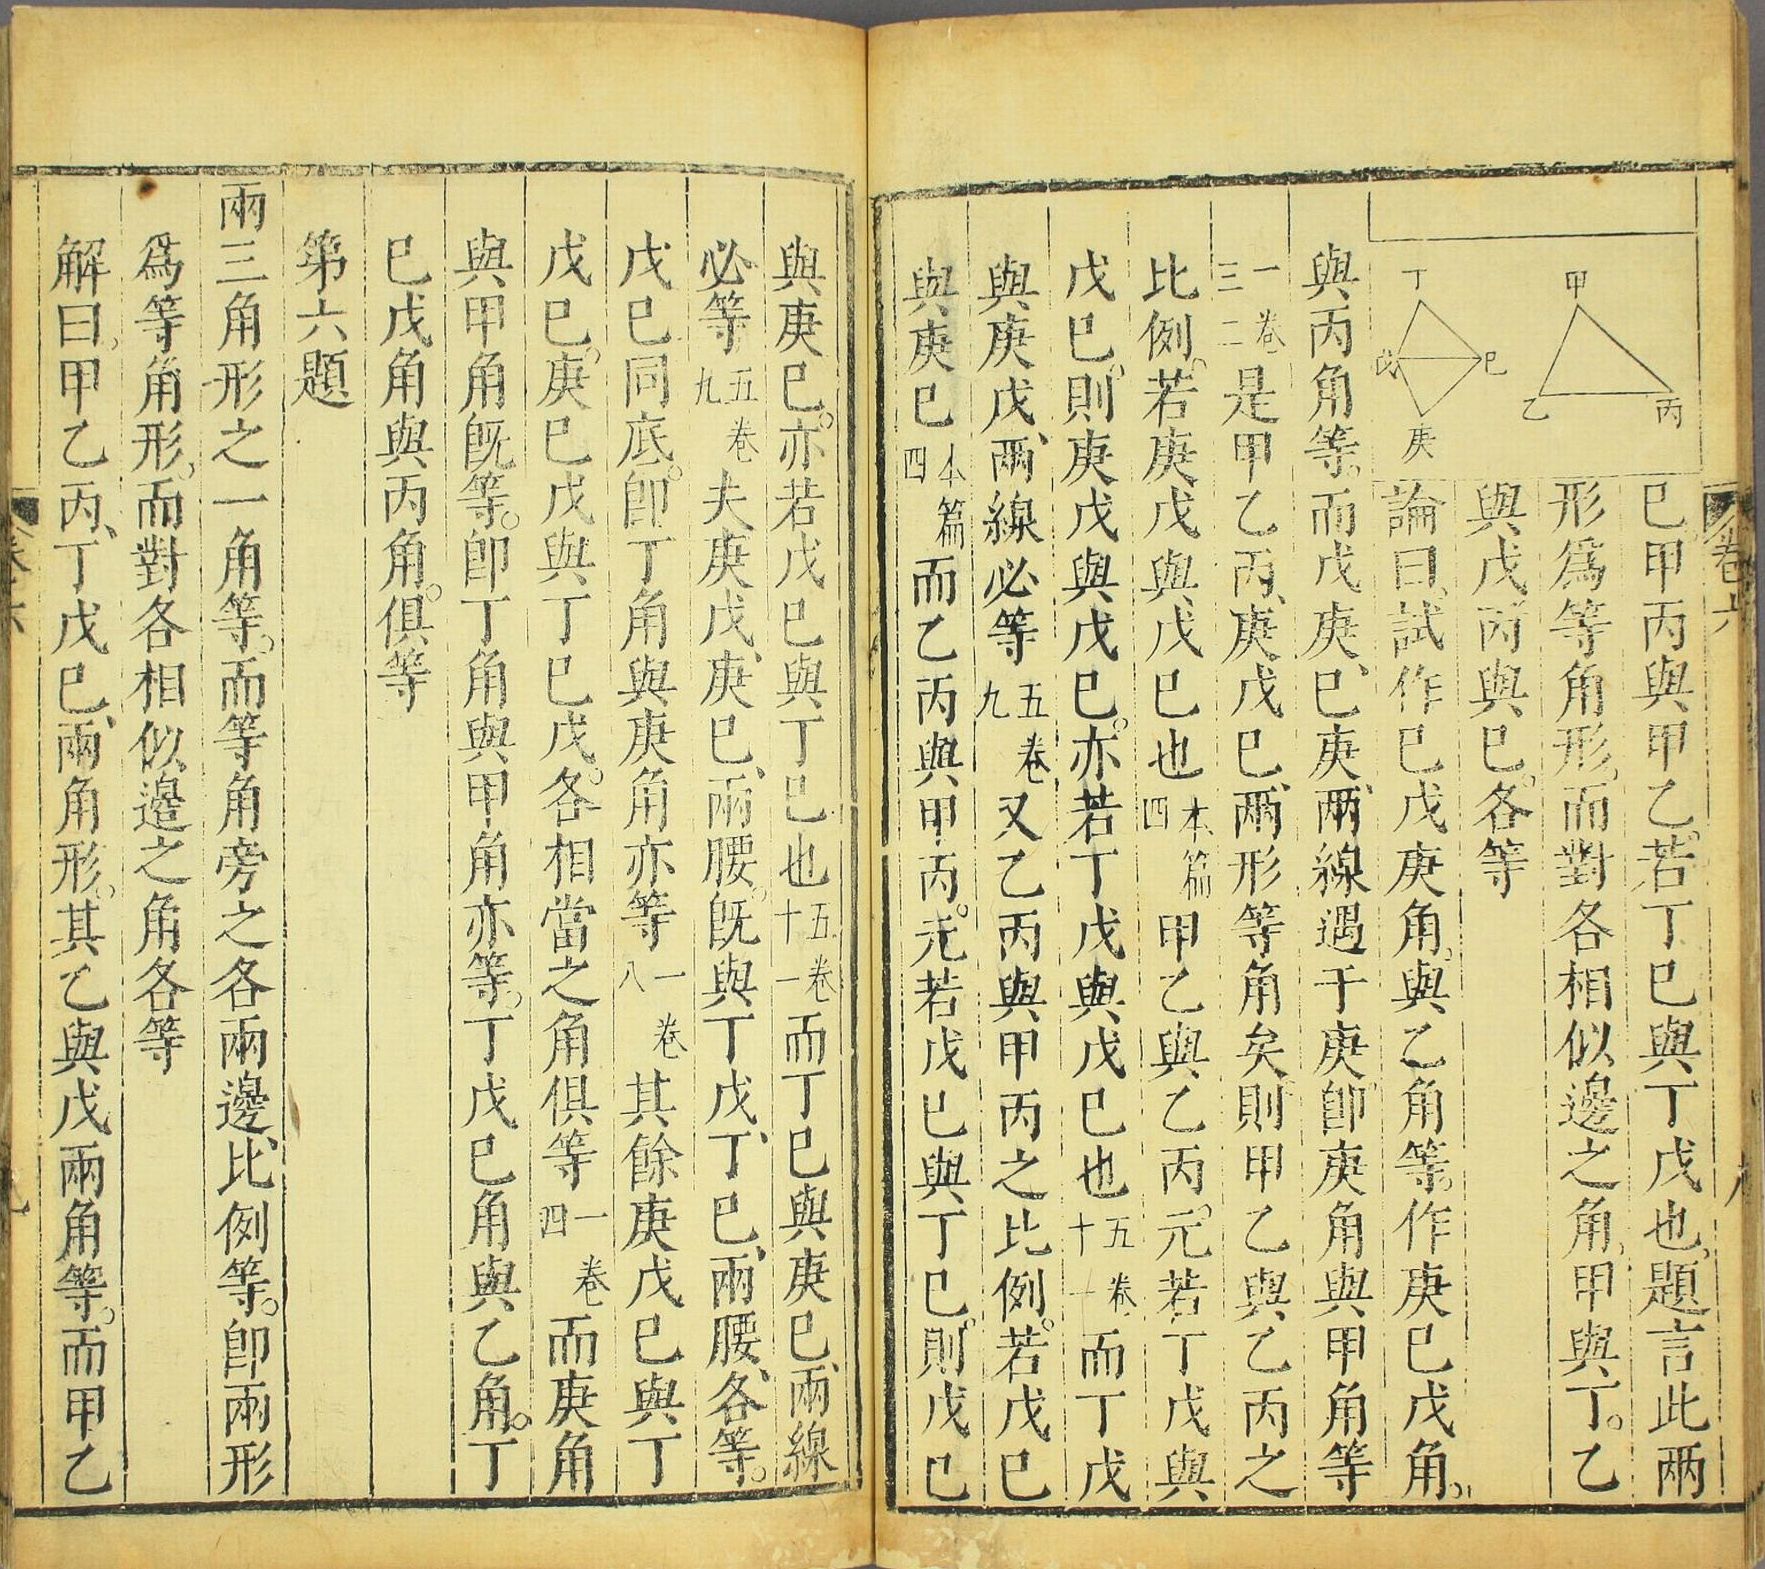 卷六
八
甲
乙
丙
丁
戊
巳
庚
巳甲丙與甲乙若丁巳與丁戊也題言此兩
形為等角形而對各相似邊之角甲與丁乙
與戊丙與巳各等
論曰試作巳戊庚角與乙角等作庚巳戊角
與丙角等而戊庚巳庚兩線遇于庚卽庚角與甲角等
一卷三二是甲乙丙庚戊巳兩形等角矣則甲乙與乙丙之
比例若庚戊與戊巳也本篇四甲乙與乙丙元若丁戊與
戊巳則庚戊與戊巳亦若丁戊與戊巳也五卷十一而丁戊
與庚戊兩線必等五卷九又乙丙與甲丙之比例若戊巳
與庚巳本篇四而乙丙與甲丙元若戊巳與丁巳則戊巳
與庚巳亦若戊巳與丁巳也五卷十一而丁巳與庚巳兩線
必等五卷九夫庚戊庚巳兩腰旣與丁戊丁巳兩腰各等
戊巳同底卽丁角與庚角亦等一卷八其餘庚戊巳與丁
戊巳庚巳戊與丁巳戊各相當之角俱等一卷四而庚角
與甲角旣等卽丁角與甲角亦等丁戊巳角與乙角丁
巳戊角與丙角俱等
第六題
兩三角形之一角等而等角旁之各兩邊比例等卽兩形
爲等角形而對各相似邊之角各等
解曰甲乙丙丁戊巳兩角形其乙與戊兩角等而甲乙